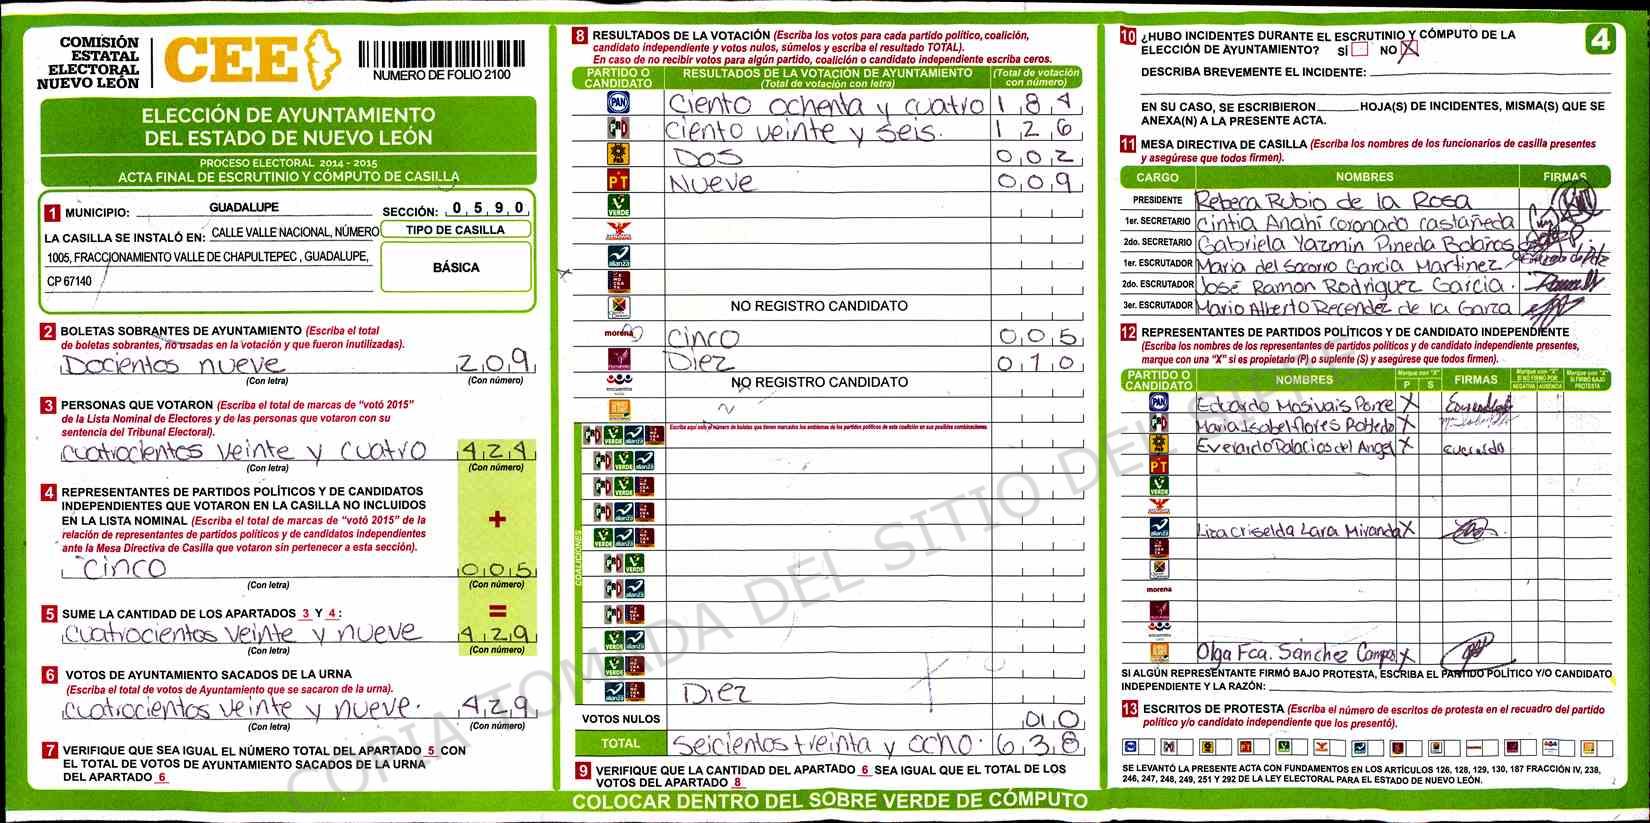 COMISIÓN
ESTATAL
ELECTORAL
NUEVO LEÓN
CEE
NUMERO DE FOLIO 2100
ELECCIÓN DE AYUNTAMIENTO
DEL ESTADO DE NUEVO LEÓN
PROCESO ELECTORAL 2014 - 2015
ACTA FINAL DE ESCRUTINIO Y CÓMPUTO DE CASILLA
1 MUNICIPIO: GUADALUPE SECCIÓN: 0 5 9 0
LA CASILLA SE INSTALÓ EN: CALLE VALLE NACIONAL, NÚMERO
1005, FRACCIONAMIENTO VALLE DE CHAPULTEPEC , GUADALUPE,
CP 67140
TIPO DE CASILLA
BÁSICA
2 BOLETAS SOBRANTES DE AYUNTAMIENTO (Escriba el total
de boletas sobrantes, no usadas en la votación y que fueron inutilizadas).
Docientos nueve 209
(Con letra) (Con número)
3 PERSONAS QUE VOTARON (Escriba el total de marcas de "votó 2015"
de la Lista Nominal de Electores y de las personas que votaron con su
sentencia del Tribunal Electoral).
cuatrocientos veinte y cuatro 424
(Con letra) (Con número)
4 REPRESENTANTES DE PARTIDOS POLÍTICOS Y DE CANDIDATOS
INDEPENDIENTES QUE VOTARON EN LA CASILLA NO INCLUIDOS
EN LA LISTA NOMINAL (Escriba el total de marcas de "votó 2015" de la
relación de representantes de partidos políticos y de candidatos independientes
ante la Mesa Directiva de Casilla que votaron sin pertenecer a esta sección).
+
cinco 005
(Con letra) (Con número)
5 SUME LA CANTIDAD DE LOS APARTADOS 3 Y 4: =
cuatrocientos veinte y nueve 429
(Con letra) (Con número)
6 VOTOS DE AYUNTAMIENTO SACADOS DE LA URNA
(Escriba el total de votos de Ayuntamiento que se sacaron de la urna).
cuatrocientos veinte y nueve. 429
(Con letra) (Con número)
7 VERIFIQUE QUE SEA IGUAL EL NÚMERO TOTAL DEL APARTADO 5 CON
EL TOTAL DE VOTOS DE AYUNTAMIENTO SACADOS DE LA URNA
DEL APARTADO 6
8 RESULTADOS DE LA VOTACIÓN (Escriba los votos para cada partido político, coalición,
candidato independiente y votos nulos, súmelos y escriba el resultado TOTAL).
En caso de no recibir votos para algún partido, coalición o candidato independiente escriba ceros.
PARTIDO O CANDIDATO RESULTADOS DE LA VOTACIÓN DE AYUNTAMIENTO (Total de votación con letra) (Total de votación con número)
PAN Ciento ochenta y cuatro 184
PRD ciento veinte y seis. 126
DOS 002
PT Nueve 009
VERDE
alianza
NO REGISTRO CANDIDATO
morena cinco 005
Diez 010
encuentro NO REGISTRO CANDIDATO
Escriba aquí solo el número de boletas que tienen marcados los emblemas de los partidos políticos de esta coalición en sus posibles combinaciones.
COALICIONES
Diez
VOTOS NULOS 010
TOTAL Seicientos treinta y ocho. 638
9 VERIFIQUE QUE LA CANTIDAD DEL APARTADO 6 SEA IGUAL QUE EL TOTAL DE LOS
VOTOS DEL APARTADO 8
COLOCAR DENTRO DEL SOBRE VERDE DE CÓMPUTO
4
10 ¿HUBO INCIDENTES DURANTE EL ESCRUTINIO Y CÓMPUTO DE LA
ELECCIÓN DE AYUNTAMIENTO? SÍ NO X
DESCRIBA BREVEMENTE EL INCIDENTE:
EN SU CASO, SE ESCRIBIERON HOJA(S) DE INCIDENTES, MISMA(S) QUE SE
ANEXA(N) A LA PRESENTE ACTA.
11 MESA DIRECTIVA DE CASILLA (Escriba los nombres de los funcionarios de casilla presentes
y asegúrese que todos firmen).
CARGO NOMBRES FIRMAS
PRESIDENTE Rebeca Rubio de la Rosa
1er. SECRETARIO Cintia Anahí coronado castañeda
2do. SECRETARIO Gabriela Yazmin Pineda Bolaños
1er. ESCRUTADOR Maria del Socorro Garcia Martinez
2do. ESCRUTADOR José Ramon Rodriguez Garcia.
3er. ESCRUTADOR Mario Alberto Recendez de la Garza
12 REPRESENTANTES DE PARTIDOS POLÍTICOS Y DE CANDIDATO INDEPENDIENTE
(Escriba los nombres de los representantes de partidos políticos y de candidato independiente presentes,
marque con una "X" si es propietario (P) o suplente (S) y asegúrese que todos firmen).
PARTIDO O CANDIDATO NOMBRES Marque con "X" P S FIRMAS Marque con "X" SI NO FIRMÓ POR: NEGATIVA AUSENCIA Marque con "X" SI FIRMÓ BAJO PROTESTA
PAN Eduardo Mosivais Ponce X
Maria Isabel flores Robledo X
Everardo Palacios del Angel X everardo
PT
VERDE
alianza Liza criselda Lara Miranda X
morena
encuentro
Olga Fca. Sánchez Campos X
SI ALGÚN REPRESENTANTE FIRMÓ BAJO PROTESTA, ESCRIBA EL PARTIDO POLÍTICO Y/O CANDIDATO
INDEPENDIENTE Y LA RAZÓN:
13 ESCRITOS DE PROTESTA (Escriba el número de escritos de protesta en el recuadro del partido
político y/o candidato independiente que los presentó).
SE LEVANTÓ LA PRESENTE ACTA CON FUNDAMENTOS EN LOS ARTÍCULOS 126, 128, 129, 130, 187 FRACCIÓN IV, 238,
246, 247, 248, 249, 251 Y 292 DE LA LEY ELECTORAL PARA EL ESTADO DE NUEVO LEÓN.
COPIA TOMADA DEL SITIO DEL SIPRE